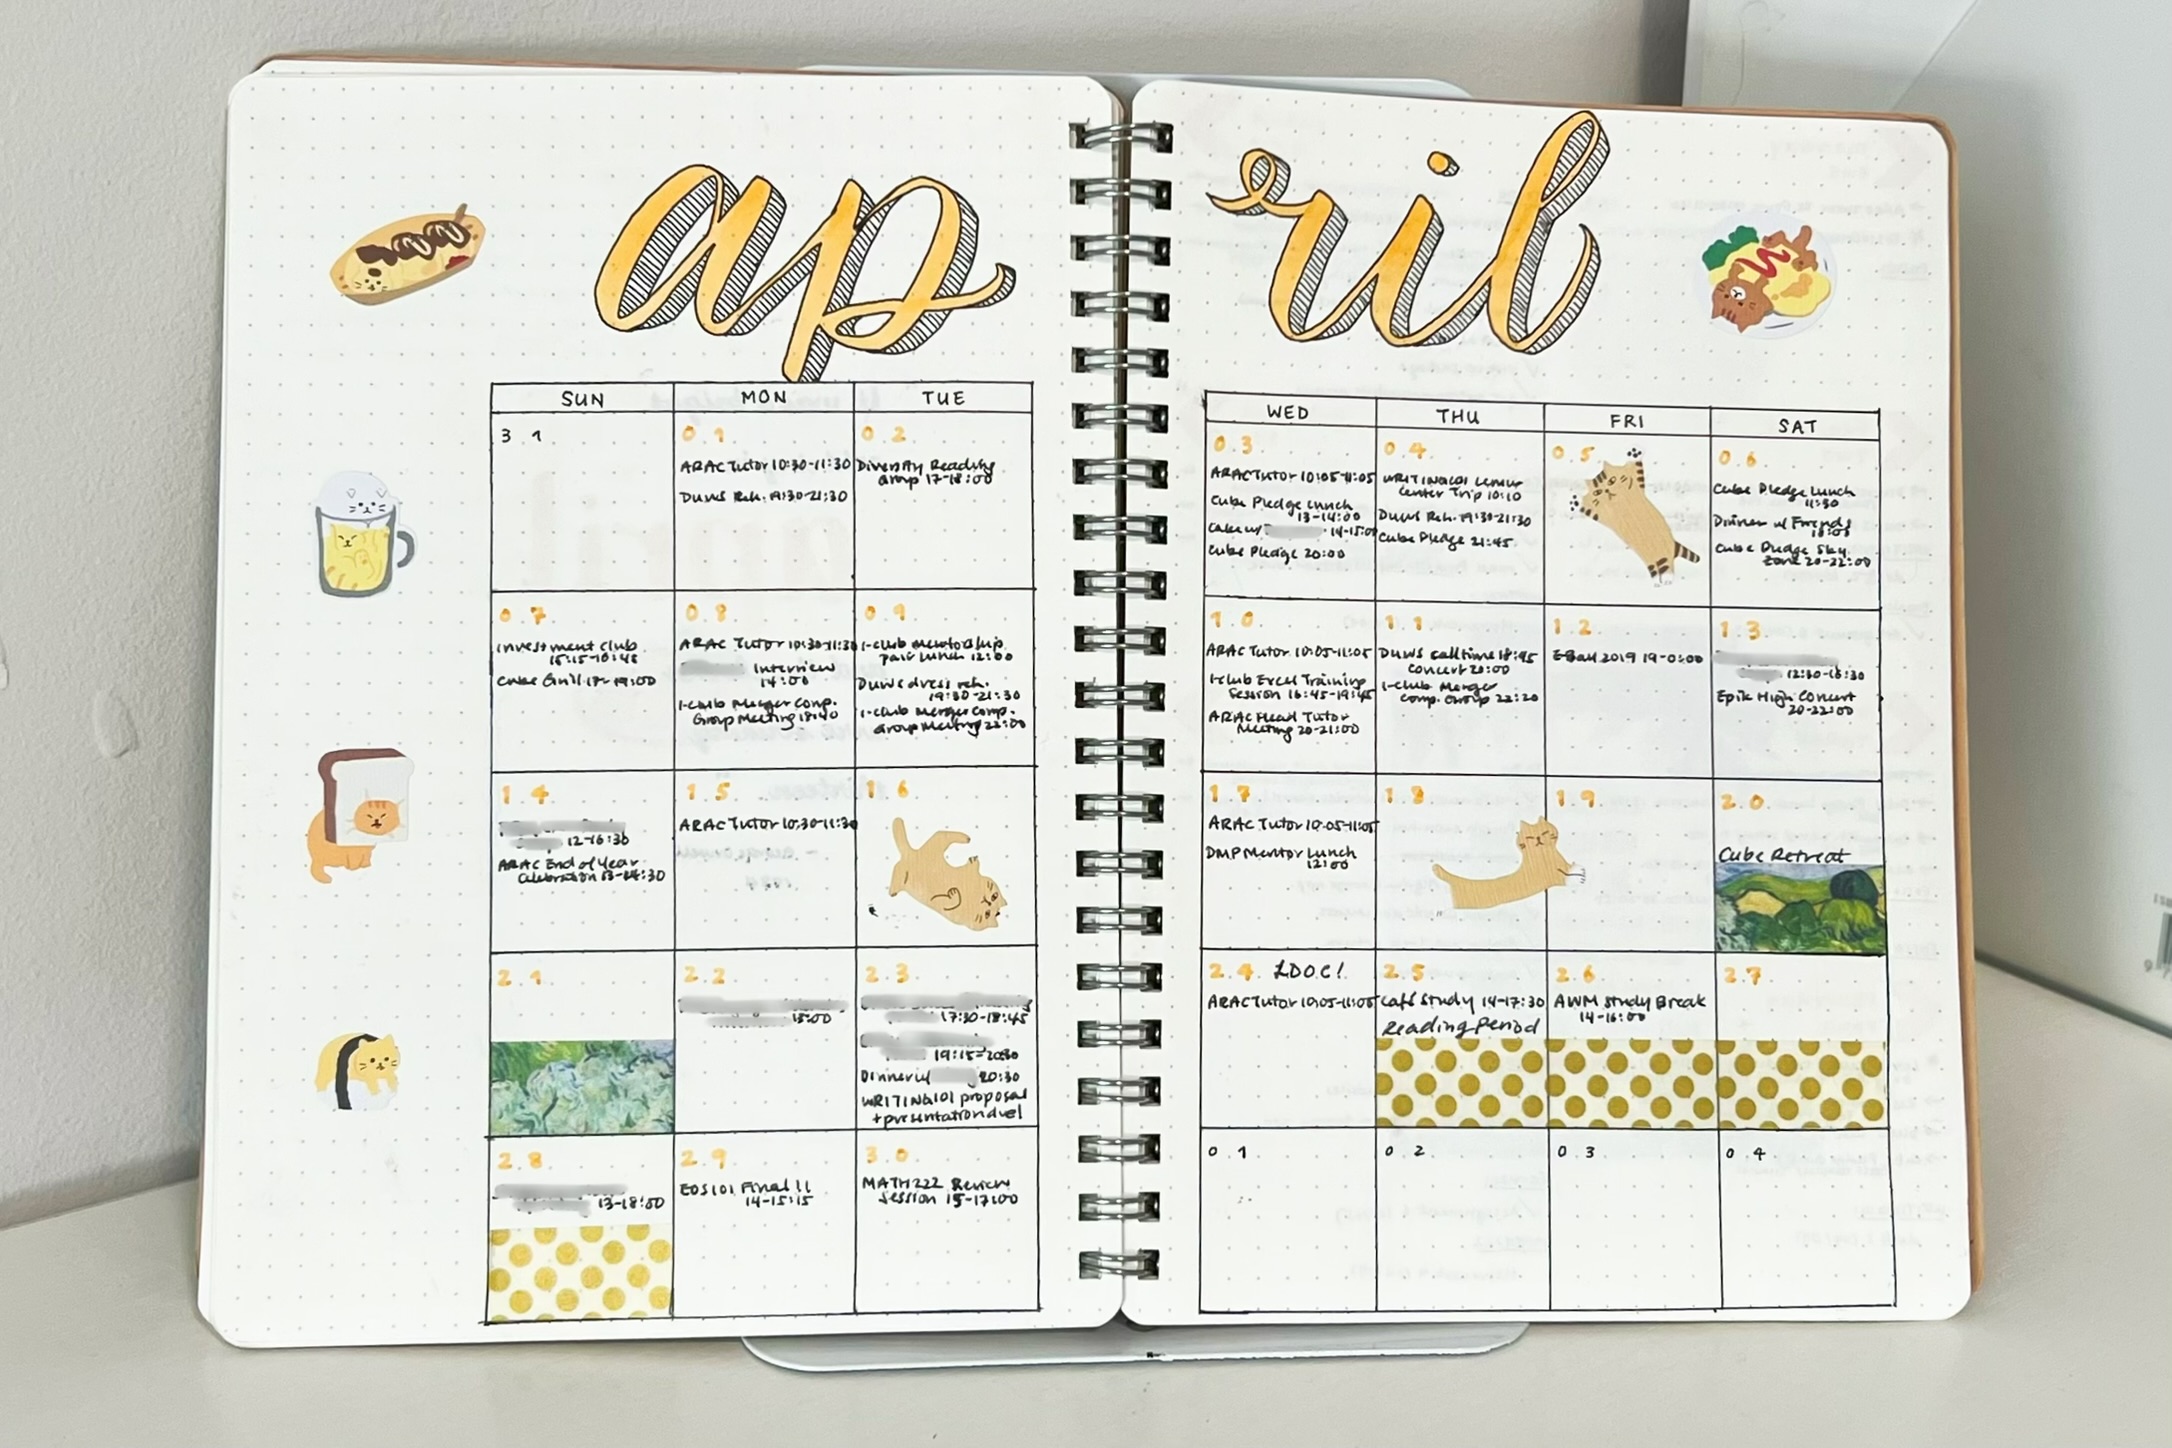 april
SUN MON TUE WED THU FRI SAT
31
01
ARAC Tutor 10:30-11:30
DUWS Reh. 19:30-21:30
02
Diversity Reading
Group 17-18:00
03
ARAC Tutor 10:05-11:05
Cube Pledge Lunch
13-14:00
14-15:00
Cube Pledge 20:00
04
WRITING101 Lemur
Center Trip 10:10
DUWS Reh. 19:30-21:30
Cube Pledge 21:45
05
06
Cube Pledge Lunch
11:30
Dinner w/ Friends
18:00
Cube Pledge Sky
Zone 20-22:00
07
Investment Club
Cube Grill 17-19:00
08
ARAC Tutor 10:30-11:30
Interview
14:00
I-Club Merger Comp.
Group Meeting 18:40
09
I-Club Mentorship
Pair Lunch 12:00
DUWS dress reh.
19:30-21:30
I-Club Merger Comp.
Group Meeting 22:00
10
ARAC Tutor 10:05-11:05
I-Club Excel Training
Session 16:45-19:45
ARAC Head Tutor
Meeting 20-21:00
11
DUWS call time 18:45
Concert 20:00
I-Club Merger
Comp. Group 22:20
12
E-Ball 2019 19-0:00
13
12:30-16:30
Epik High Concert
20-22:00
14
12-16:30
ARAC End of Year
Celebration 13-14:30
15
ARAC Tutor 10:30-11:30
16
17
ARAC Tutor 10:05-11:05
DMP Mentor Lunch
12:00
18
19
20
Cube Retreat
21
22
15:00
23
17:30-18:45
19:15-20:30
Dinner w/ 20:30
WRITING101 proposal
+ presentation due!
24 LDOC!
ARAC Tutor 10:05-11:05
25
Café Study 14-17:30
Reading Period
26
AWM Study Break
14-16:00
27
28
13-18:00
29
EOS101 Final!!
14-15:15
30
MATH222 Review
Session 15-17:00
01
02
03
04